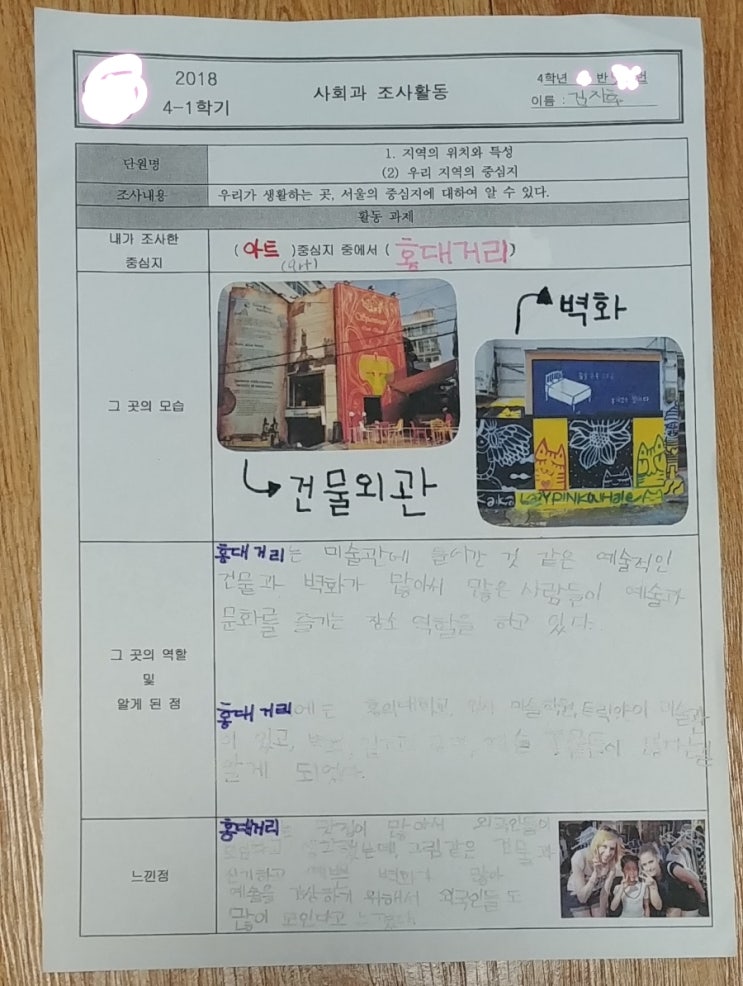 2018
4-1학기
사회과 조사활동
4학년 반 번
이름 :
단원명
1. 지역의 위치와 특성
(2) 우리 지역의 중심지
조사내용
우리가 생활하는 곳, 서울의 중심지에 대하여 알 수 있다.
활동 과제
내가 조사한
중심지
( 아트 )중심지 중에서 ( 홍대거리 )
(art)
그 곳의 모습
벽화
건물외관
LAZYPINKWHALE
그 곳의 역할
및
알게 된 점
홍대거리는 미술관에 들어간 것 같은 예술적인
건물과 벽화가 많아서 많은 사람들이 예술과
문화를 즐기는 장소 역할을 하고 있다.
홍대거리에는 홍익대학교, 미술학원, 트릭아이 미술관
이 있고,
알게 되었다.
느낀점
홍대거리는 맛집이 많아서 외국인들이
생각했는데, 그림같은 건물과
신기하고 예쁜 벽화가 많아
예술을 감상하기 위해서 외국인들도
많이 모인다고 느꼈다.